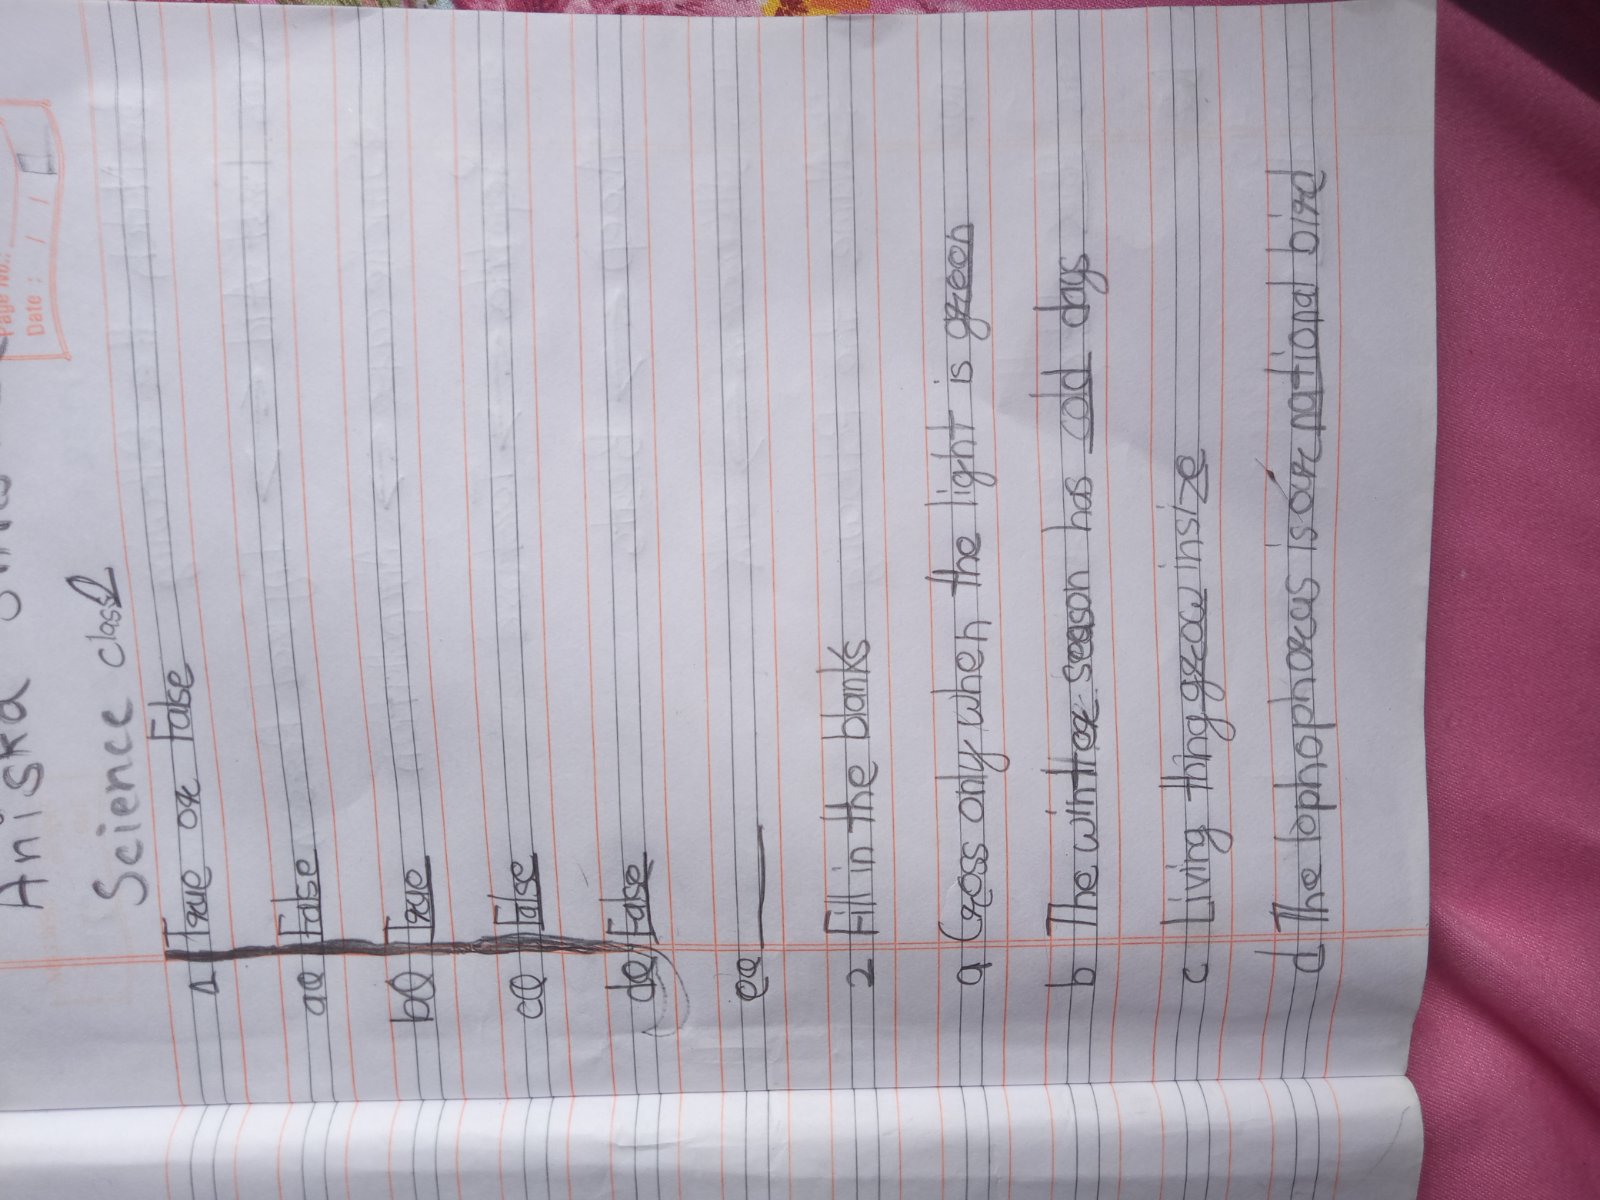 Aniska
Page No.:
Date : / /
Science class 2
1 True or False
aQ False
bQ True
cQ False
dQ False
eQ
2 Fill in the blanks
a Cross only when the light is green
b The winter season has old days
c Living thing grow in size
d The lophophorus is our national bird